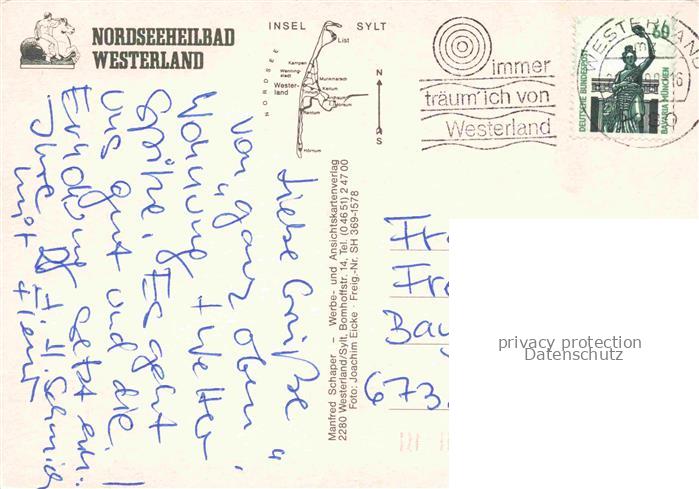 NORDSEEHEILBAD
WESTERLAND
INSEL SYLT
NORDSEE
List
Kampen
Wenning-
stadt
Munkmarsch
Wester-
land
Keitum
Morsum
Rantum
Hörnum
N
S
immer
träum' ich von
Westerland
WESTERLAND
60
DEUTSCHE BUNDESPOST
BAVARIA MÜNCHEN
Manfred Schaper – Werbe- und Ansichtskartenverlag
2280 Westerland/Sylt, Bomhoffstr. 14, Tel. (0 46 51) 2 47 00
Foto: Joachim Eicke · Freig.-Nr. SH 369-1578
Liebe Grüße
von "ganz oben"
Wohnung + Wetter
Spitze. Es geht
uns gut und die
Erholung setzt ein!
Ihre H. Schmid
mit
Fr
Fre
Bay
673
privacy protection
Datenschutz